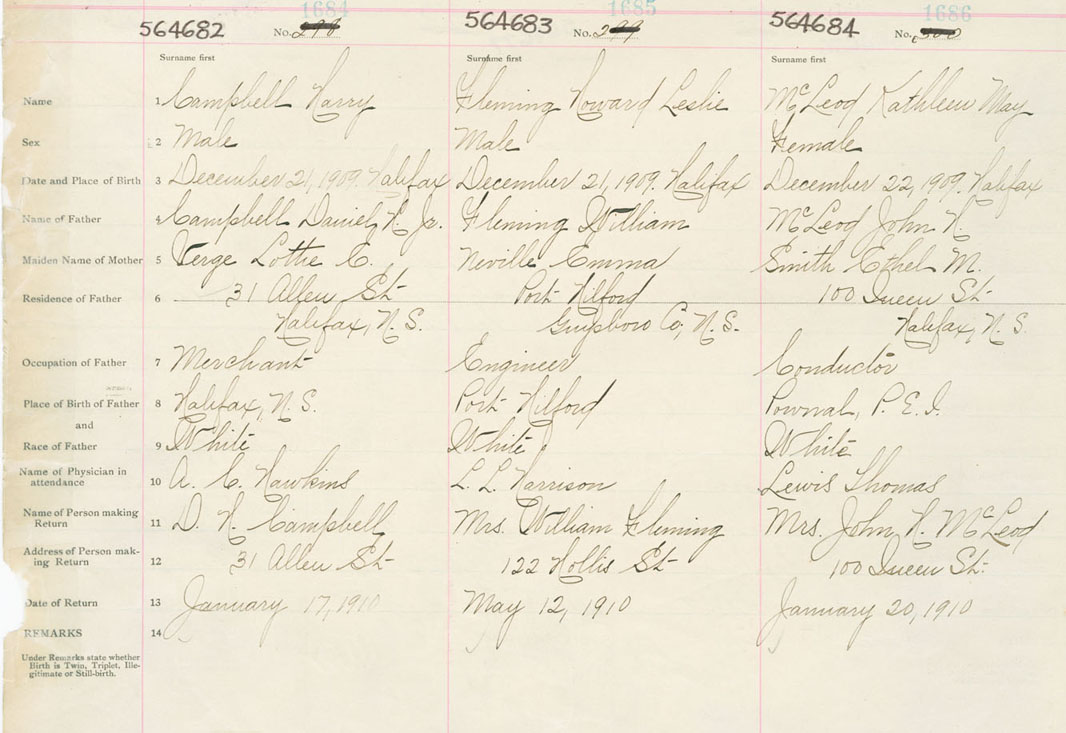 1684 1685 1686
564682 No. 298 564683 No. 299 564684 No. 300
Surname first Surname first Surname first
Name 1 Campbell Harry Fleming Howard Leslie McLeod Kathleen May
Sex 2 Male Male Female
Date and Place of Birth 3 December 21, 1909. Halifax December 21, 1909. Halifax December 22, 1909. Halifax
Name of Father 4 Campbell Daniel H. Jr. Fleming William McLeod John H.
Maiden Name of Mother 5 Verge Lottie E. Neville Emma Smith Ethel M.
Residence of Father 6 31 Allen St Port Hilford 100 Queen St
Halifax, N. S. Guysboro Co, N. S. Halifax, N. S.
Occupation of Father 7 Merchant Engineer Conductor
Place of Birth of Father 8 Halifax, N. S. Port Hilford Pownal, P. E. I.
and
Race of Father 9 White White White
Name of Physician in
attendance 10 A. C. Hawkins L. L. Harrison Lewis Thomas
Name of Person making
Return 11 D. H. Campbell Mrs. William Fleming Mrs. John H. McLeod
Address of Person mak-
ing Return 12 31 Allen St 122 Hollis St 100 Queen St.
Date of Return 13 January 17, 1910 May 12, 1910 January 20, 1910
REMARKS 14
Under Remarks state whether
Birth is Twin, Triplet, Ille-
gitimate or Still-birth.